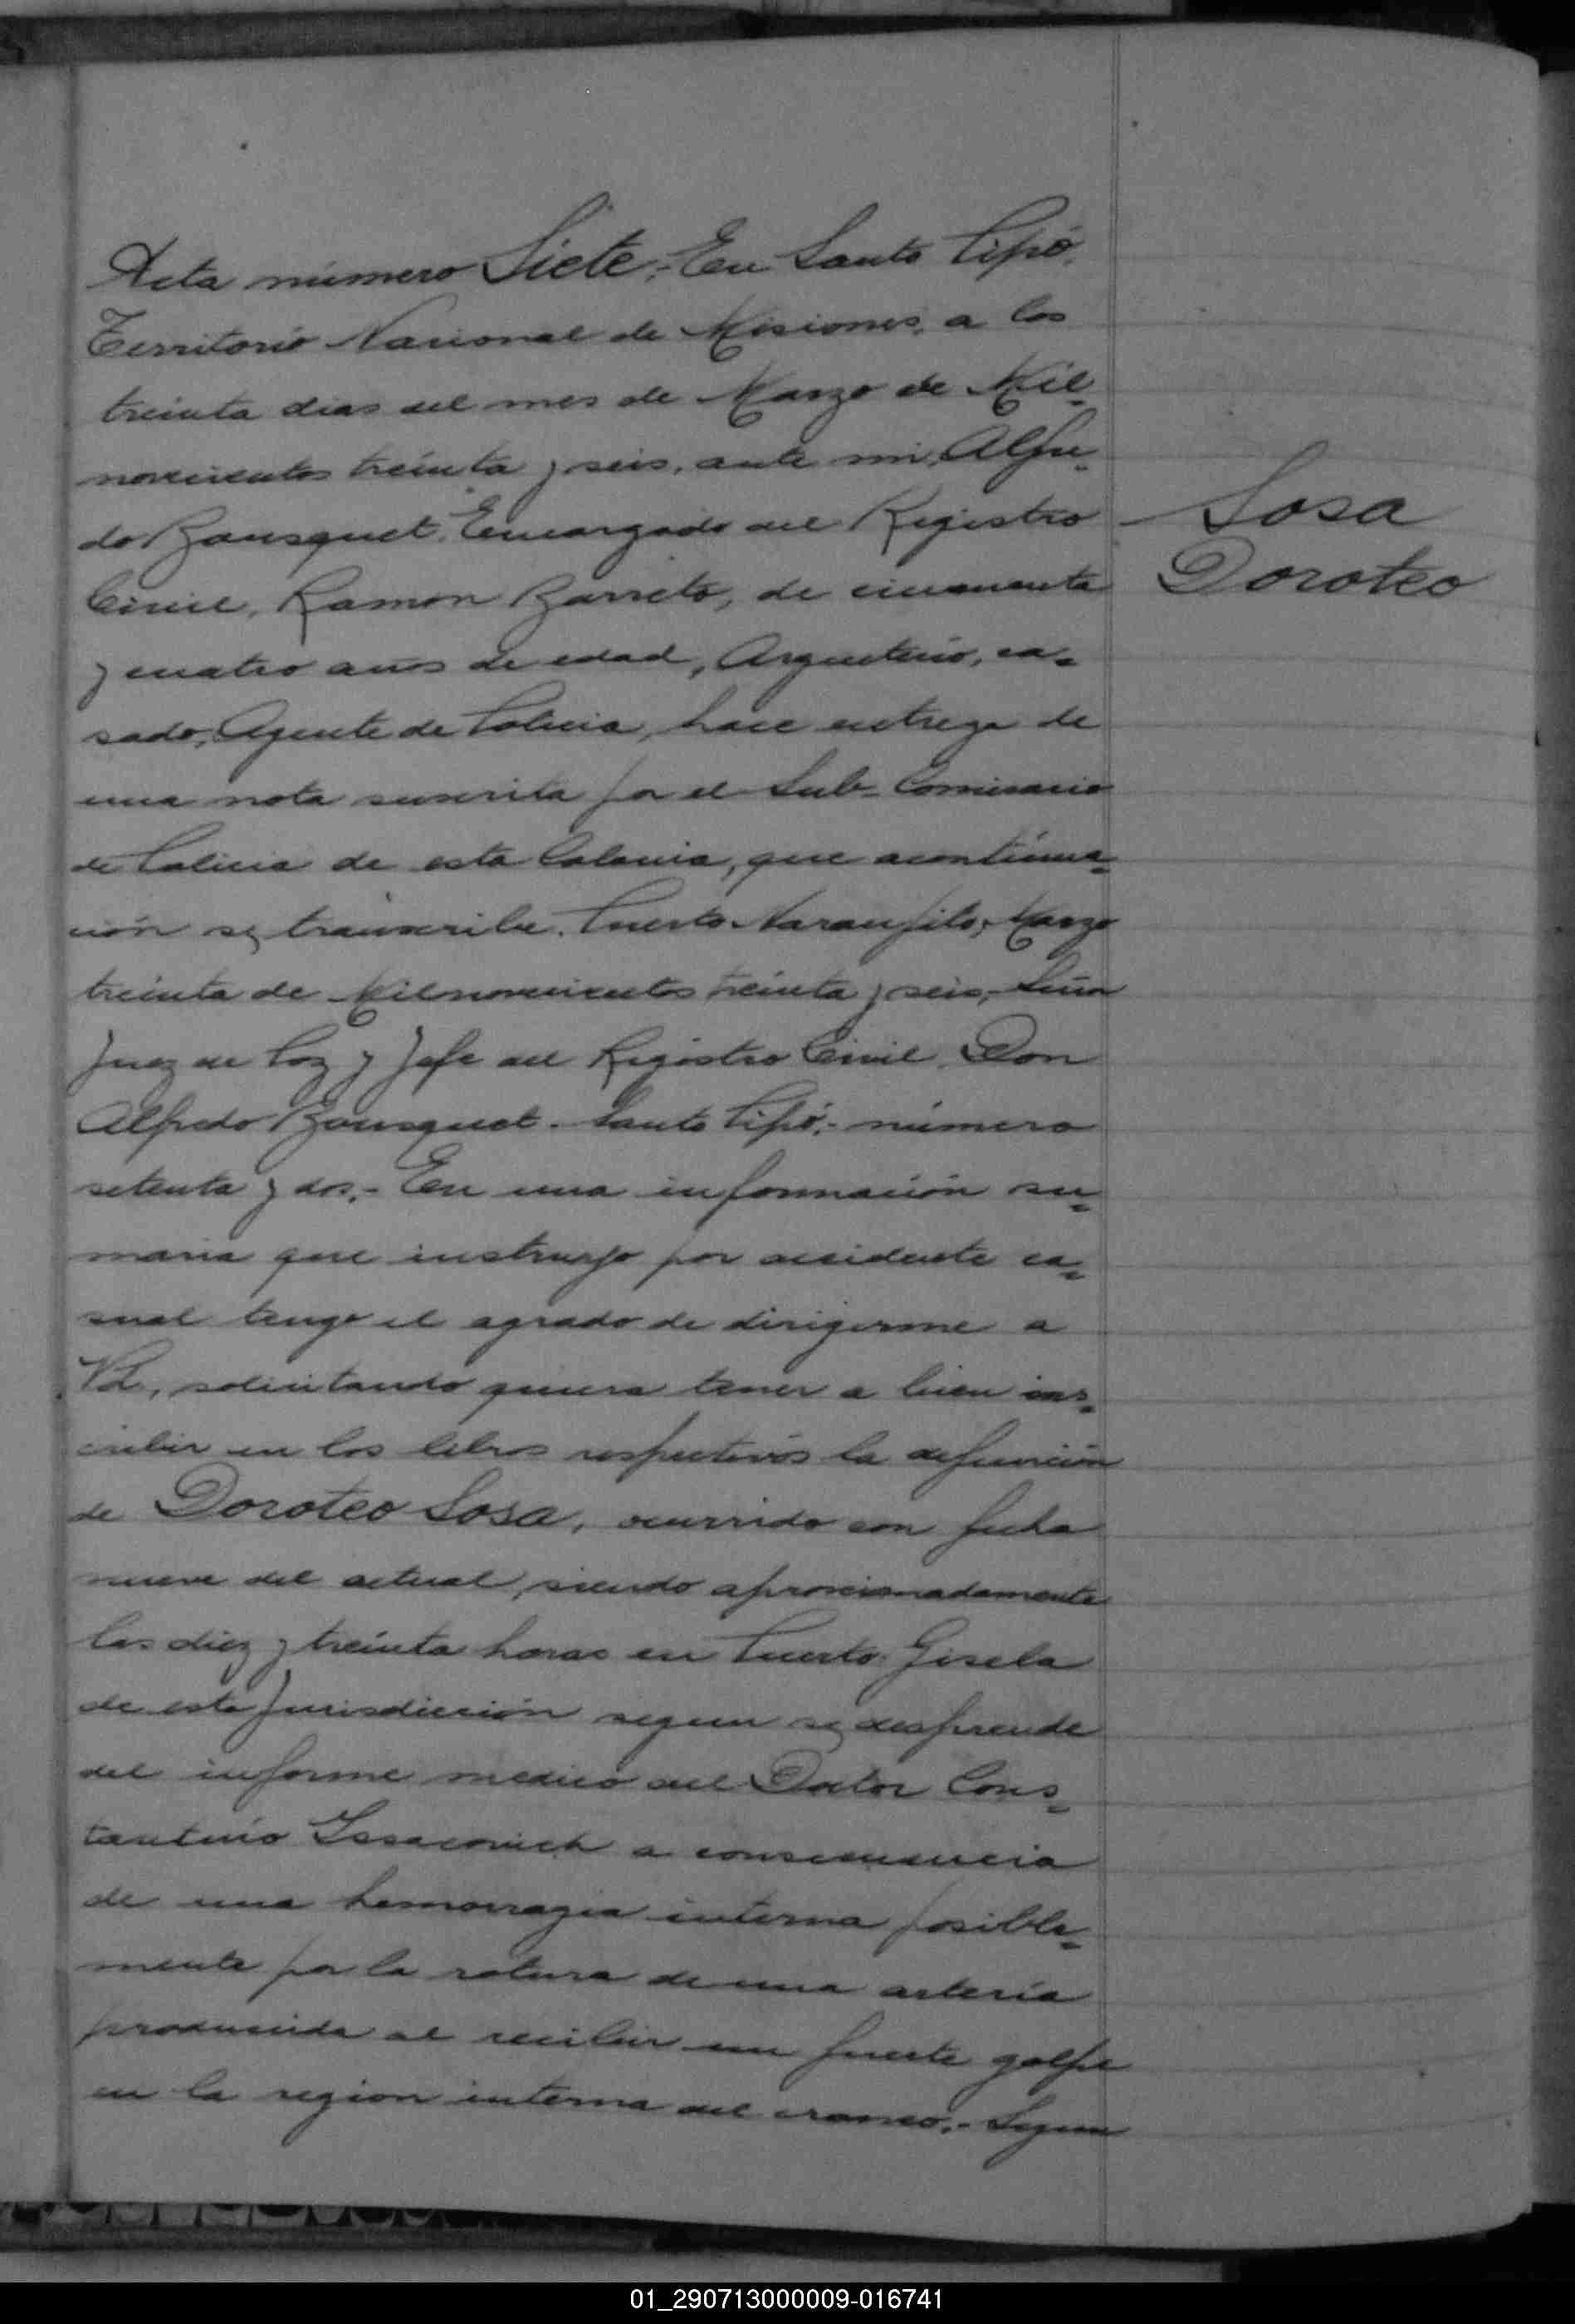 Acta número Siete.- En Santo Pipó,
Territorio Nacional de Misiones, a los
treinta dias del mes de Marzo de Mil-
novecientos treinta y seis, ante mi, Alfre-
do Bousquet, Encargado del Registro
Civil, Ramon Barreto, de cincuenta
y cuatro años de edad, Argentino, ca-
sado, Agente de Policia, hace entrega de
una nota suscrita por el Sub-Comisario
de Policia de esta Colonia, que acontinua-
ción se, transcribe. Puerto Naranjito, Marzo
treinta de Milnovecientos treinta y seis,- Señor
Juez de Paz y Jefe del Registro Civil. Don
Alfredo Bousquet. Santo Pipó.- número
setenta y dos.- En una información su-
maria que instruyo por accidente ca-
sual tengo el agrado de dirigirme a
Vd, solicitando quiera tener a bien ins-
cribir en los libros respectivos la defunción
de Doroteo Sosa, ocurrido con fecha
nueve del actual, siendo aproximadamente
las diez y treinta horas en Puerto Gisela
de esta Jurisdicción segun se, desprende
del informe medico del Doctor Cons-
tantino Issacovich a consecuencia
de una hemorragia interna posible-
mente por la rotura de una arteria
producida al recibir un fuerte golpe
en la region interna del craneo.- Segun
Sosa
Doroteo
01_290713000009-016741